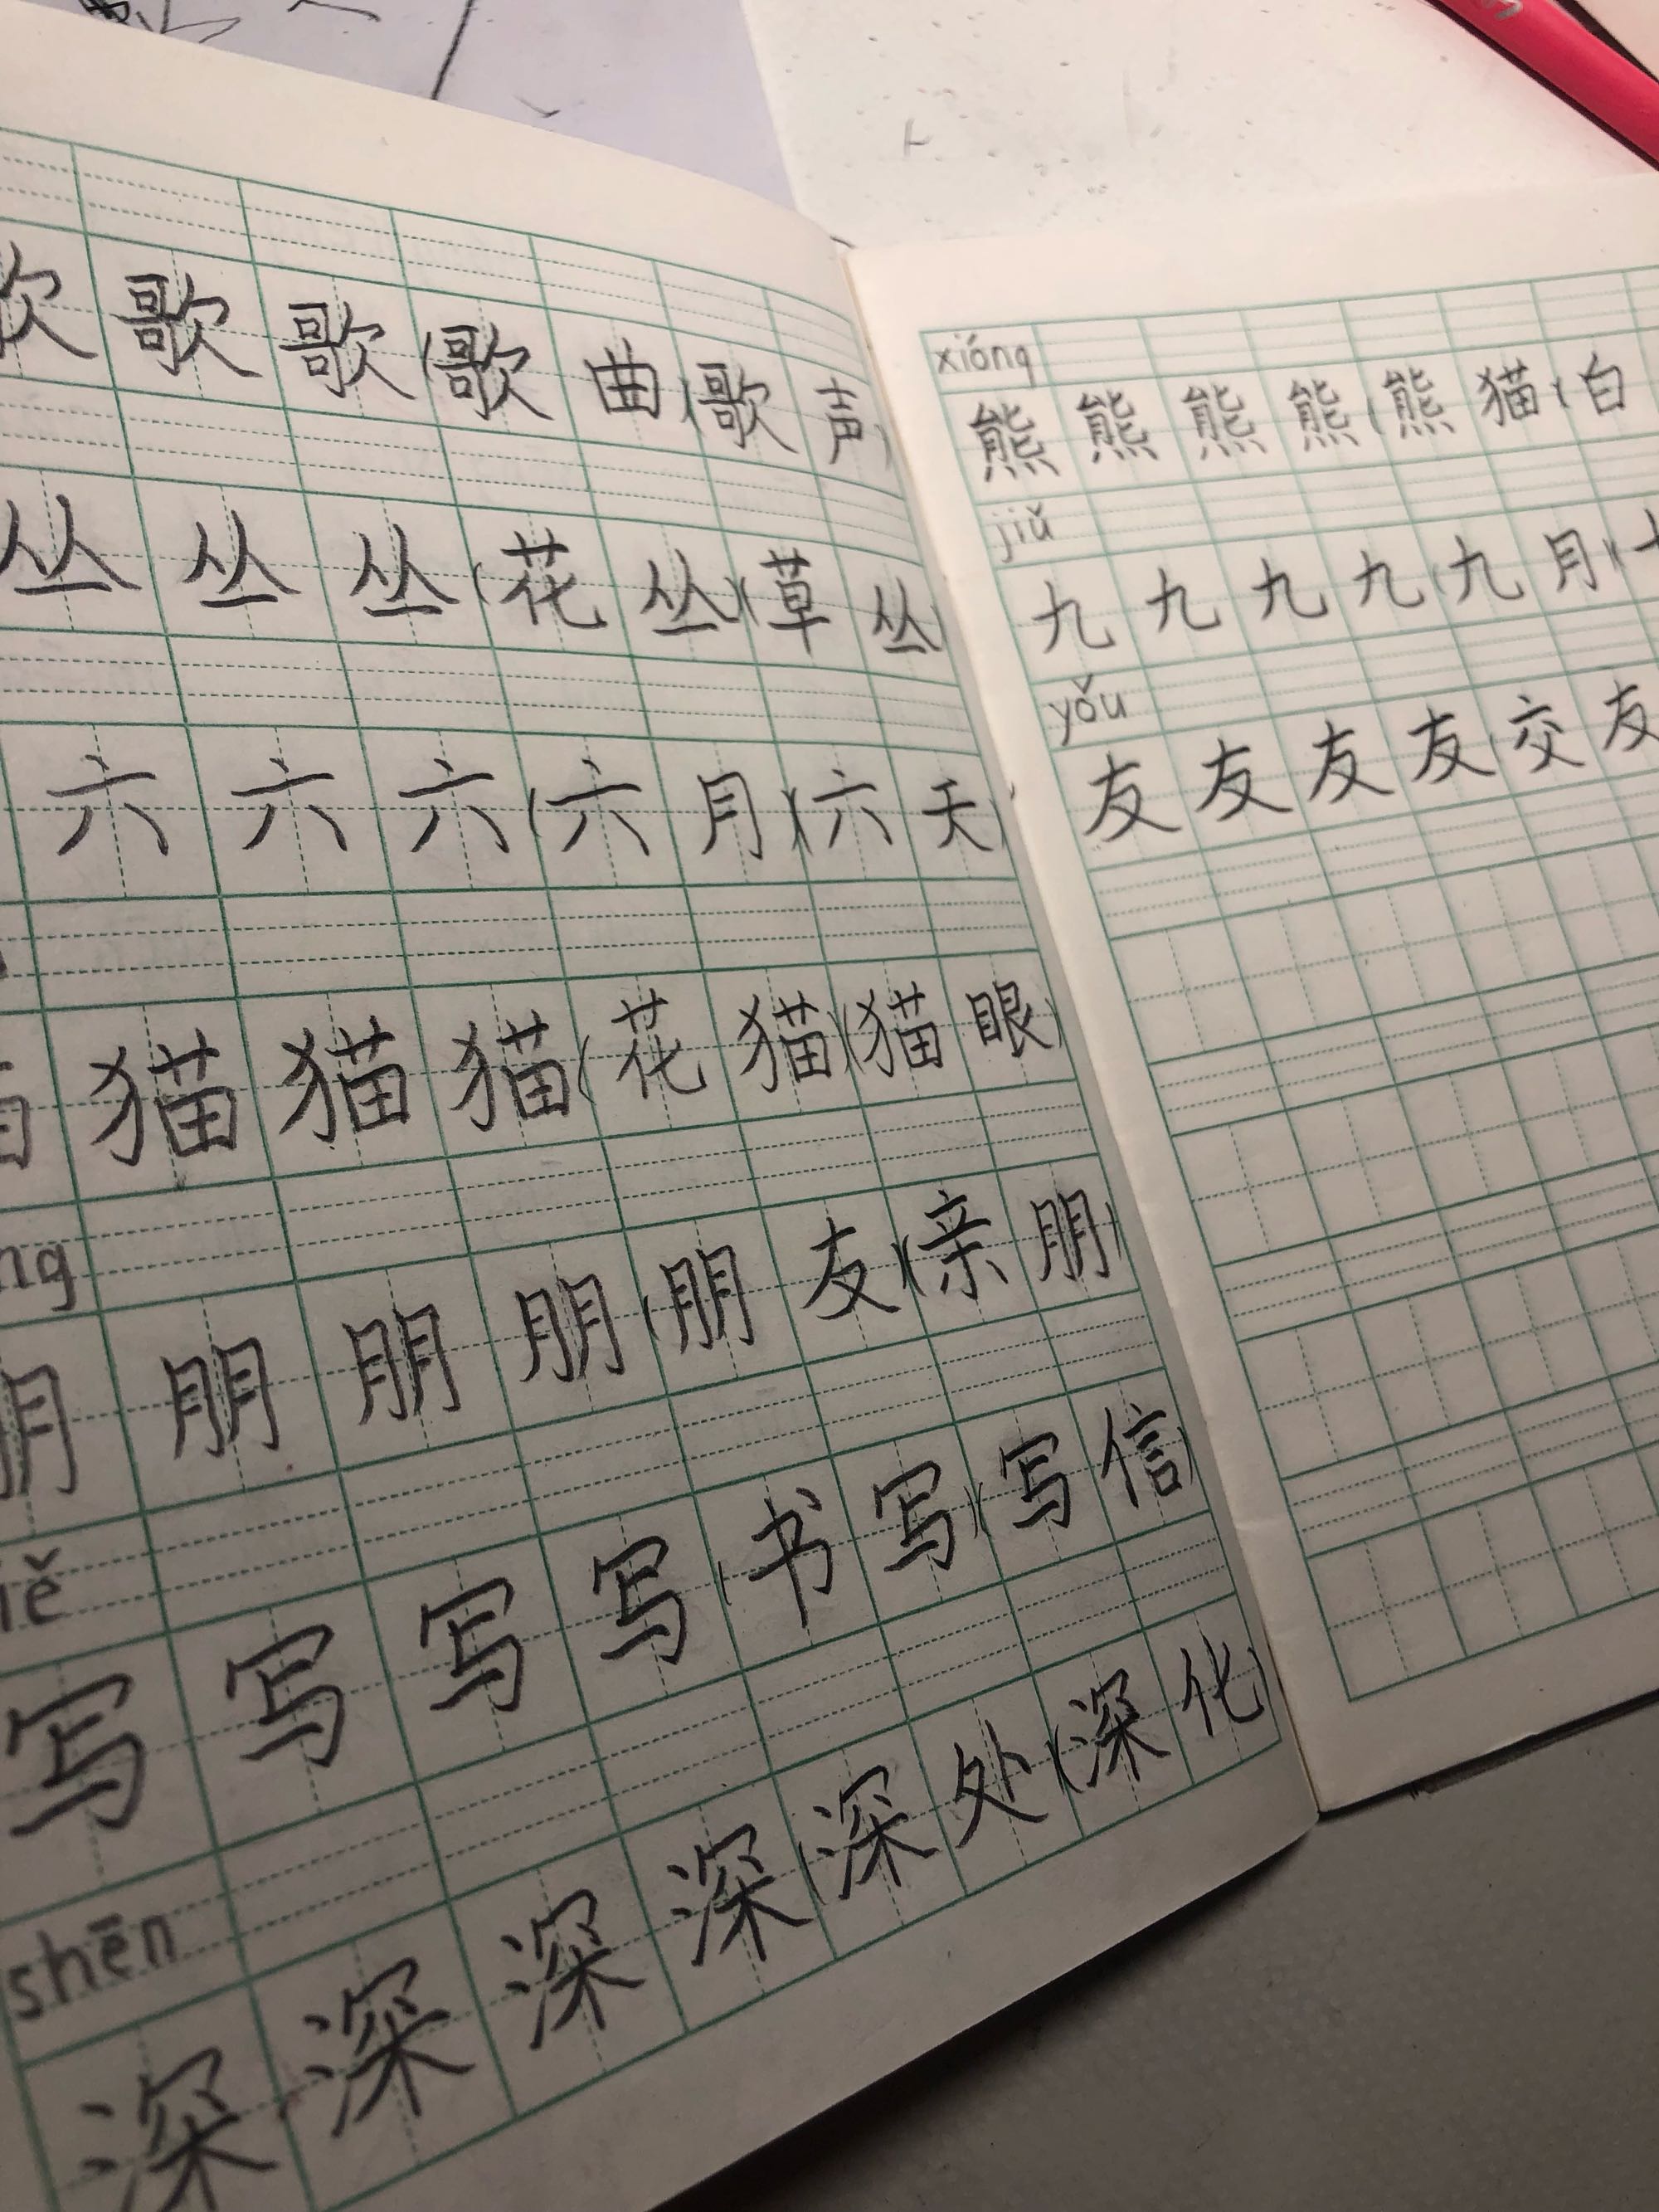 歌 歌 (歌 曲) (歌 声)
丛 丛 丛 (花 丛) (草 丛)
六 六 六 (六 月) (六 天)
猫 猫 猫 (花 猫) (猫 眼)
朋 朋 朋 朋 (朋 友) (亲 朋)
写 写 写 写 (书 写) (写 信)
shēn
深 深 深 深 (深 处) (深 化)
xióng
熊 熊 熊 熊 (熊 猫) (白
jiǔ
九 九 九 九 (九 月) (
yǒu
友 友 友 友 (交 友